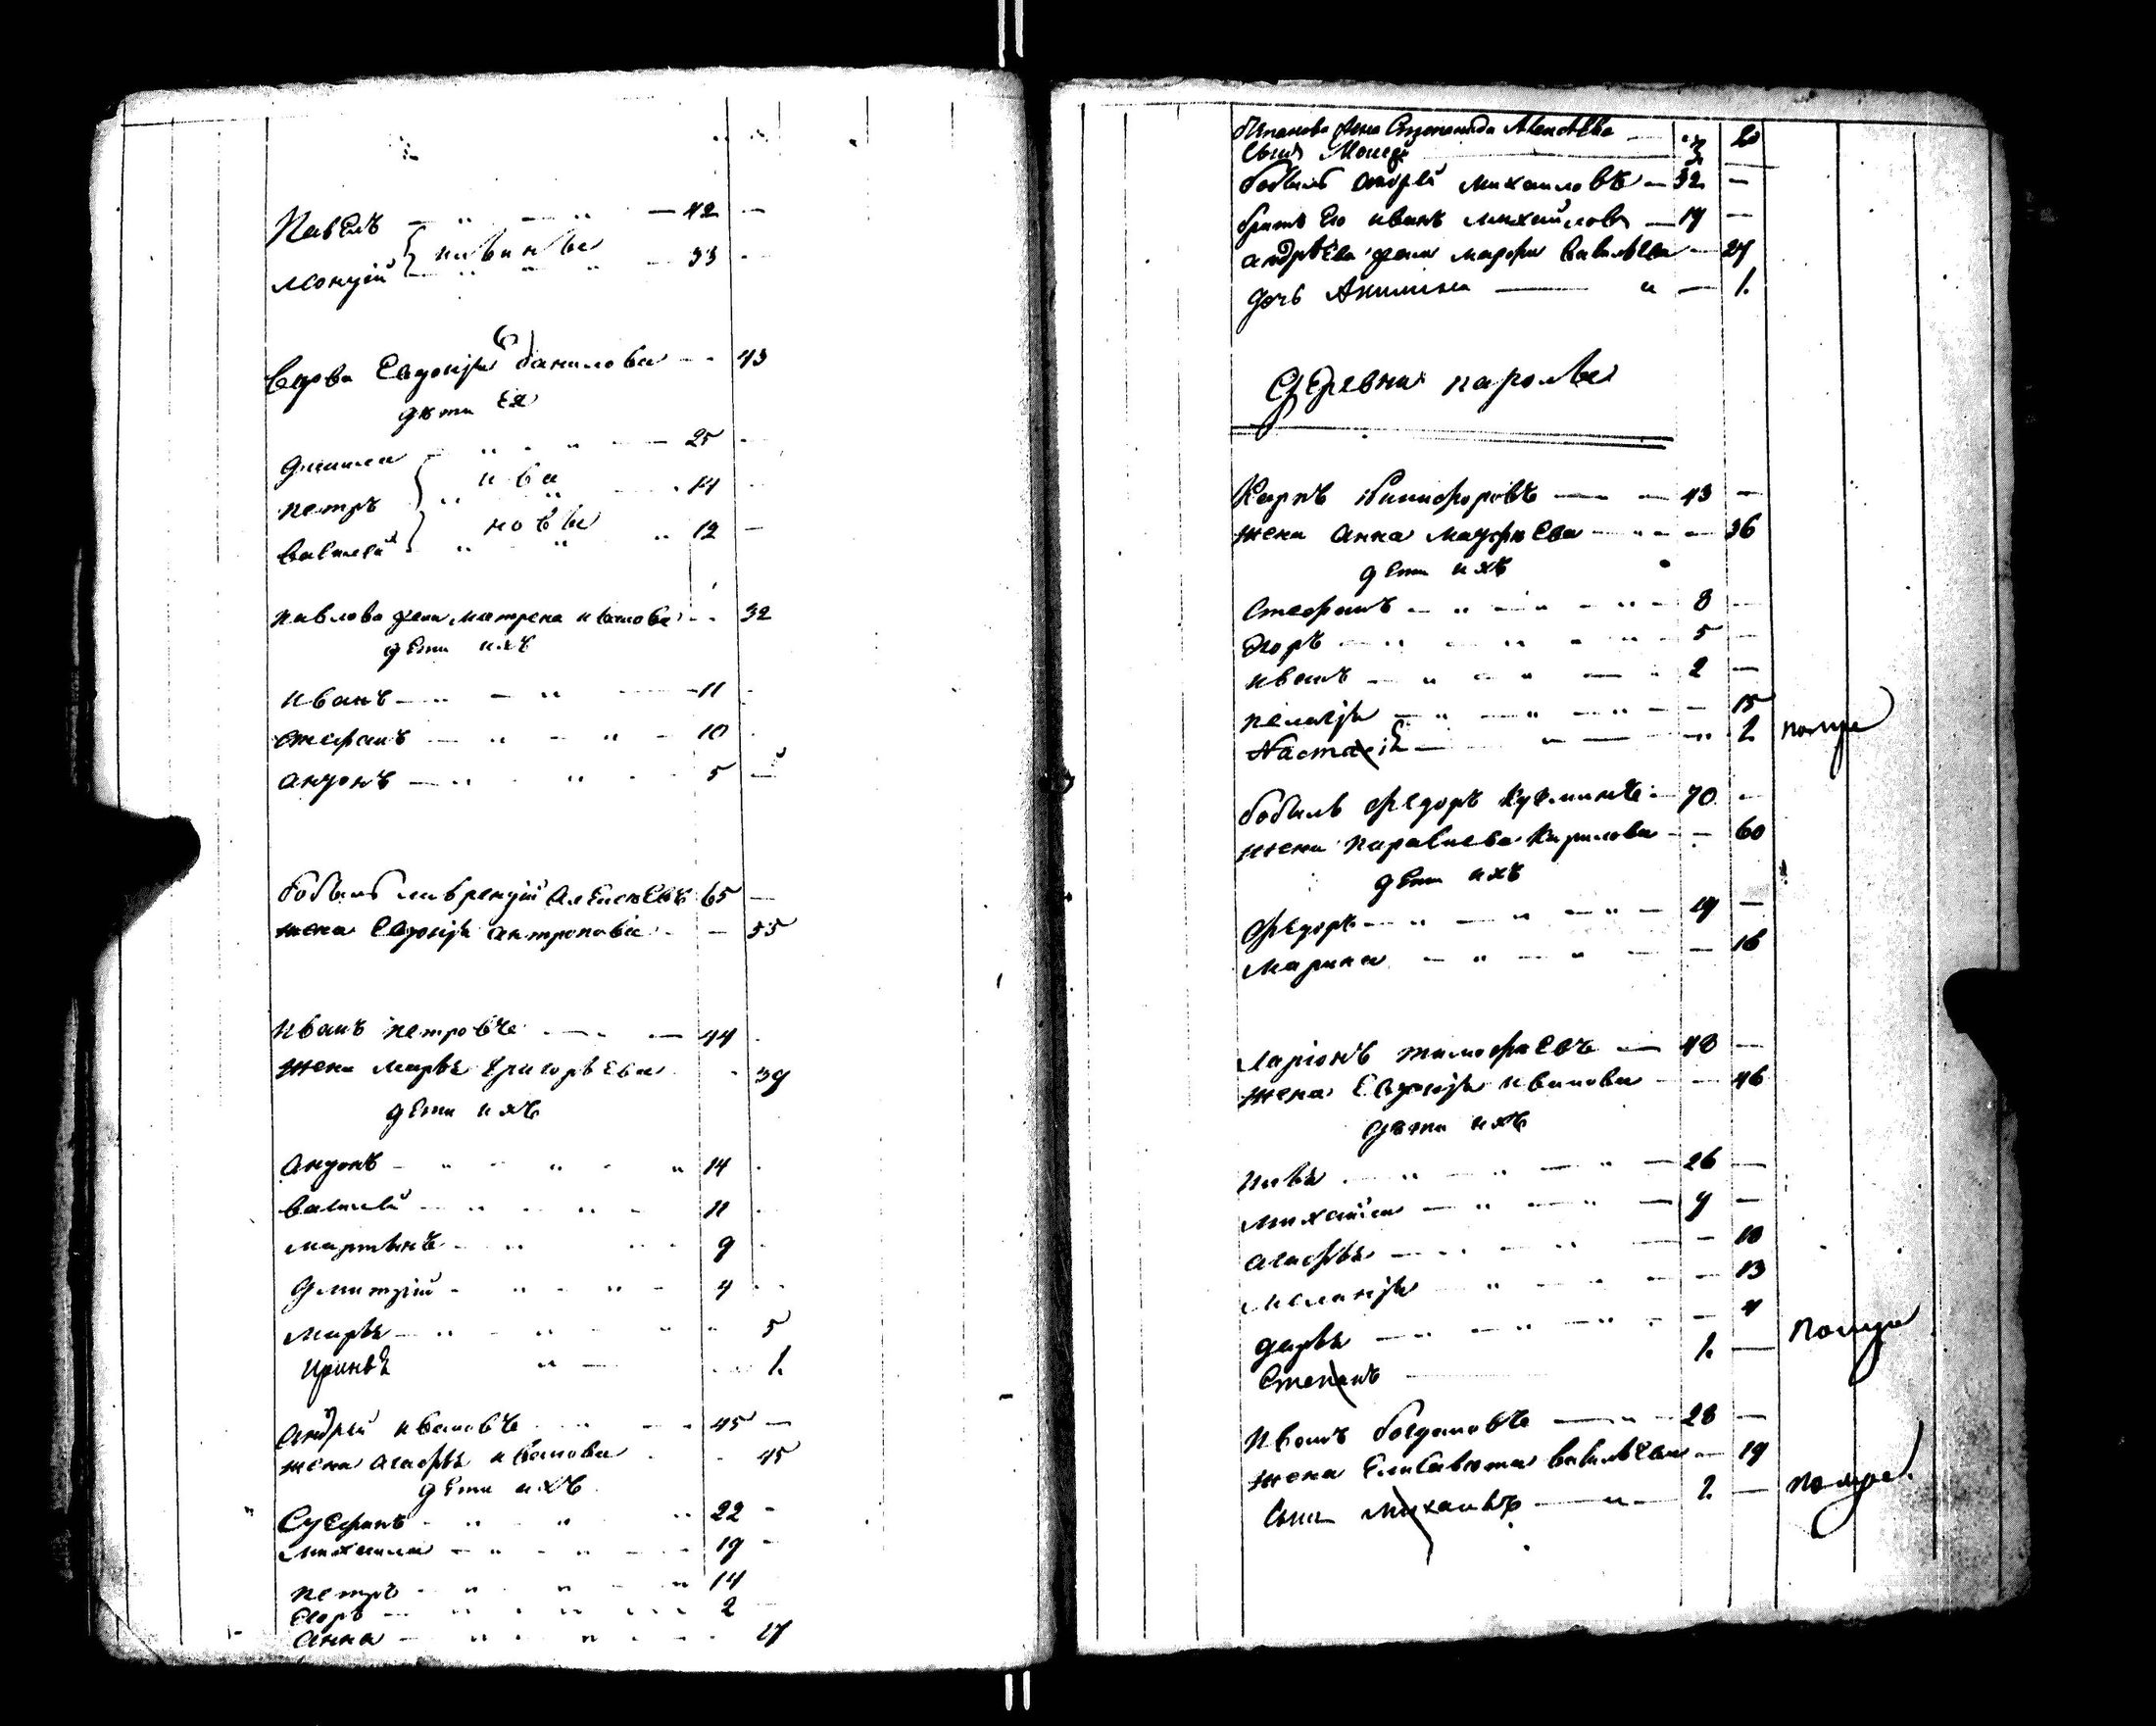 Павелъ — 42 —
ивановы
Монуій — 33 —
Вдова Евдокія Данилова — 43
дѣти Ея
25 —
Петръ — ива — 14
Василей — новы — 12 —
Павлова жена Матрена Иванова — 32
дети ихъ
Иванъ — 11
Стефанъ — 10
Антонъ — 5 —
бобыль Лаврентій Алексѣевъ 65 —
жена Евдокія Антропова — 55
Иванъ Петровъ — 44
жена Марья Григорьева — 39
дети ихъ
Антонъ — 14
Василей — 11
Мартынъ — 9
Дмитрій — 4
Марья — 5
Ириньѣ — 1.
Андрей Ивановъ — 45 —
жена Агафья Иванова — 45
дети ихъ
Стефанъ — 22 —
Михаила — 19 —
Петръ — 14
Егоръ — 2
Анна — 17
жена Алексѣева — 20
Сынъ Мойсей — 3 —
бобыль Андрей Михаиловъ — 32 —
братъ Его Иванъ Михайловъ — 19 —
Андрѣева жена Марфа Васильева — 27
дочь Акилина — 1.
Деревня Наролы
Карпъ Никифоровъ — 43 —
жена Анна Мауфиева — 36
дети ихъ
Стефанъ — 8 —
Егоръ — 5 —
Иванъ — 2 —
Пелагія — 15
Настасіѣ — 2 помре
бобыль Федоръ Кузминъ — 70 —
жена Парасиева Карпова — 60
дети ихъ
Федоръ — 19 —
Марина — 16
Ларіонъ Тимофиевъ — 48 —
жена Евдокія Иванова — 46
дѣти ихъ
Илья — 26 —
Михаила — 9 —
Агафья — 18
Меланія — 13
Дарья — 4
Степанъ — 1. — помре
Иванъ Богдановъ — 28 —
жена Елисавета Васильева — 19
Сынъ Михаилъ — 2 — помре.